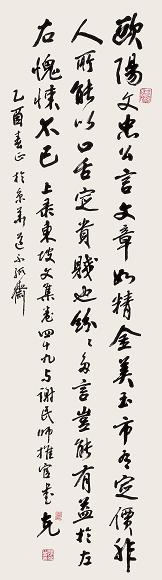 歐陽文忠公言文章如精金美玉市有定價非
人所能以口舌定貴賤也紛紛多言豈能有益於左
右愧悚不已 上录東坡文集卷四十九与謝民師推官書 克
乙酉春正於京華道不孤齋